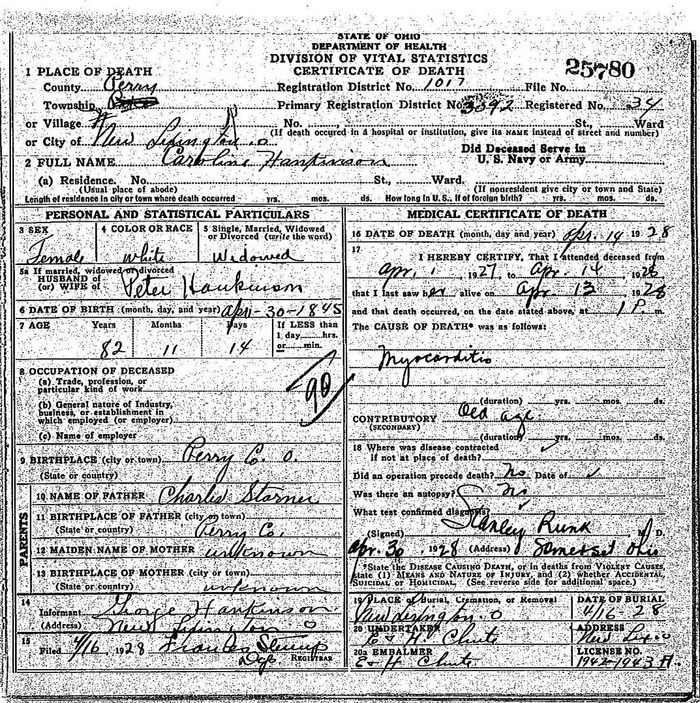 STATE OF OHIO
DEPARTMENT OF HEALTH
DIVISION OF VITAL STATISTICS
CERTIFICATE OF DEATH
25780
1 PLACE OF DEATH
County Perry Registration District No. 1017 File No.
Township Primary Registration District No. 3392 Registered No. 34
or Village No. St., Ward
(If death occurred in a hospital or institution, give its NAME instead of street and number)
or City of New Lexington O
2 FULL NAME Caroline Hankinson
Did Deceased Serve in
U. S. Navy or Army
(a) Residence. No. St., Ward.
(Usual place of abode) (If nonresident give city or town and State)
Length of residence in city or town where death occurred yrs. mos. ds. How long in U. S., if of foreign birth? yrs. mos. ds.
PERSONAL AND STATISTICAL PARTICULARS
3 SEX 4 COLOR OR RACE 5 Single, Married, Widowed
or Divorced (write the word)
Female White Widowed
5a If married, widowed or divorced
HUSBAND of
(or) WIFE of Peter Hankinson
6 DATE OF BIRTH (month, day, and year) Apr-30-1845
7 AGE Years Months Days If LESS than
1 day, hrs.
or min.
82 11 14
8 OCCUPATION OF DECEASED
(a) Trade, profession, or
particular kind of work
(b) General nature of Industry,
business, or establishment in
which employed (or employer)
(c) Name of employer
90
9 BIRTHPLACE (city or town) Perry Co. O.
(State or country)
PARENTS
10 NAME OF FATHER Charles Starner
11 BIRTHPLACE OF FATHER (city or town)
(State or country) Perry Co.
12 MAIDEN NAME OF MOTHER unknown
13 BIRTHPLACE OF MOTHER (city or town)
(State or country) unknown
14
Informant George Hankinson
(Address) New Lexington O
15
Filed 4/16 1928 Frances
Dep REGISTRAR
MEDICAL CERTIFICATE OF DEATH
16 DATE OF DEATH (month, day and year) Apr. 14 1928
17
I HEREBY CERTIFY, That I attended deceased from
Apr 1 1927 to Apr 14 1928
that I last saw her alive on Apr 13 1928
and that death occurred, on the date stated above, at 1 P. m.
The CAUSE OF DEATH* was as follows:
Myocarditis
(duration) yrs. mos. ds.
CONTRIBUTORY Old age.
(SECONDARY)
(duration) yrs. mos. ds.
18 Where was disease contracted
if not at place of death?
Did an operation precede death? No Date of
Was there an autopsy? No
What test confirmed diagnosis?
(Signed) Stanley Runk M. D.
Apr. 30, 1928 (Address) Somerset Ohio
*State the DISEASE CAUSING DEATH, or in deaths from VIOLENT CAUSES,
state (1) MEANS AND NATURE OF INJURY, and (2) whether ACCIDENTAL,
SUICIDAL, or HOMICIDAL. (See reverse side for additional space.)
19 PLACE of Burial, Cremation, or Removal DATE OF BURIAL
New Lexington. O 4/16 28
20 UNDERTAKER ADDRESS
E & H Chute New Lex. O
20a EMBALMER LICENSE NO.
E & H Chute 1942-1943 A.